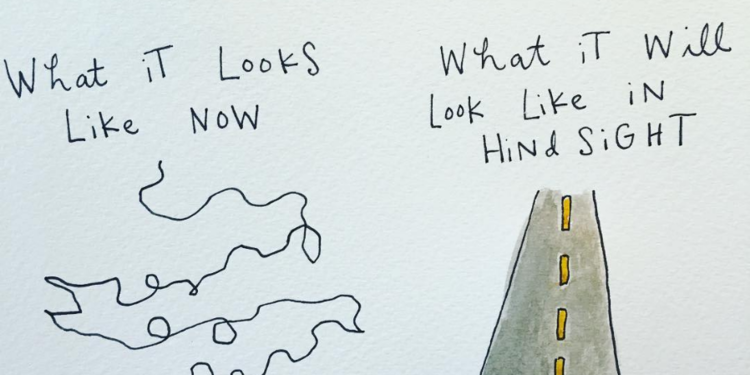 What iT Looks
Like NOW
What iT Will
Look Like iN
HiNd SiGHT